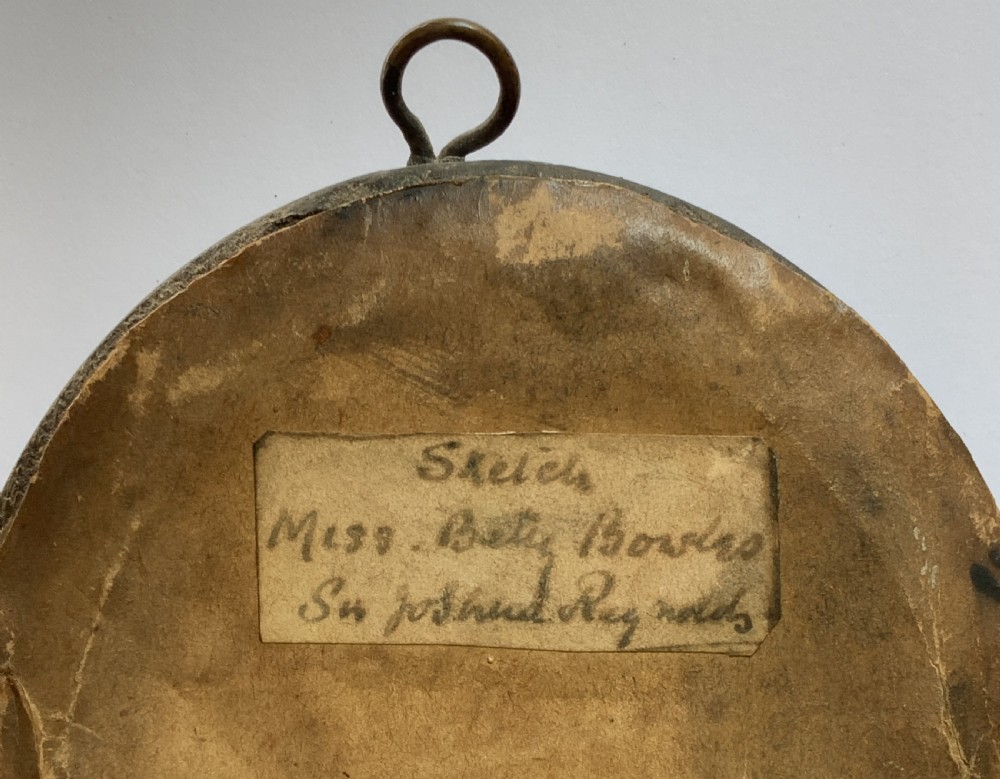 Sketch
Miss. Betty Bowles
Sir Joshua Reynolds